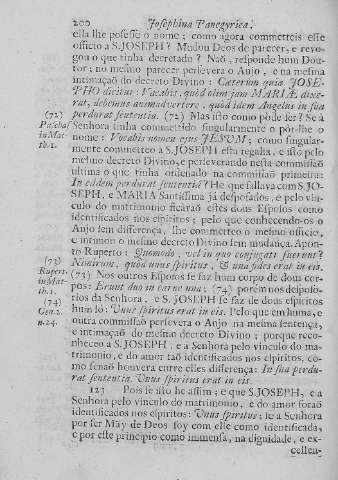 200 Josephina Panegyrica.
ella lhe posesse o nome; como agora commetteis esse
officio a S. JOSEPH? Mudou Deos de parecer, e revo-
gou o que tinha decretado? Naõ, responde hum Dou-
tor; no mesmo parecer persevera o Anjo, e na mesma
intimaçaõ do decreto Divino: Cæterum quia JOSE-
PHO dicitur: Vocabis, quod olim jam MARIÆ dixe-
rat, debemus animadvertere, quòd idem Angelus in sua
perdurat sententia. (72) Mas isto como póde ser? Se à
Senhora tinha commettido singularmente o pòr-lhe o
nome: Vocabis nomen ejus JESUM; como singular-
mente commetteo a S. JOSEPH esta regalia, e isso pelo
mesmo decreto Divino, e perseverando nesta commissaõ
ultima o que tinha ordenado na commissaõ primeira:
In eâdem perdurat sententiâ? He que fallava com S. JO-
SEPH, e MARIA Santissima já desposados, e pelo vin-
culo do matrimonio ficaraõ estes dous Esposos como
identificados nos espiritos; pelo que conhecendo-os o
Anjo sem differença, lhe commetteo o mesmo officio,
e intimou o mesmo decreto Divino sem mudança. Apon-
to Ruperto: Quomodo, vel in quo conjugati fuerunt?
Nimirum, quòd unus spiritus, & una fides erat in eis.
(73) Nos outros Esposos se faz hum corpo de dous cor-
pos: Erunt duo in carne una; (74) porém nos desposo-
rios da Senhora, e S. JOSEPH se faz de dous espiritos
hum só: Unus spiritus erat in eis. Pelo que em huma, e
outra commissaõ persevera o Anjo na mesma sentença,
e intimaçaõ do mesmo decreto Divino; porque reco-
nheceo a S. JOSEPH, e a Senhora pelo vinculo do ma-
trimonio, e do amor taõ identificados nos espiritos, co-
mo senaõ houvera entre elles differença: In sua perdu-
rat sententia. Unus spiritus erat in eis.
123 Pois se isto he assim; e que S. JOSEPH, e a
Senhora pelo vinculo do matrimonio, e do amor foraõ
identificados nos espiritos: Unus spiritus; se a Senhora
por ser Mãy de Deos foy com elle como identificada,
e por este principio como immensa, na dignidade, e ex-
cellen-
(72)
Paschas.
in Mat-
th. 1.
(73)
Rupert.
in Mat-
th. 1.
(74)
Gen. 2.
n. 24.